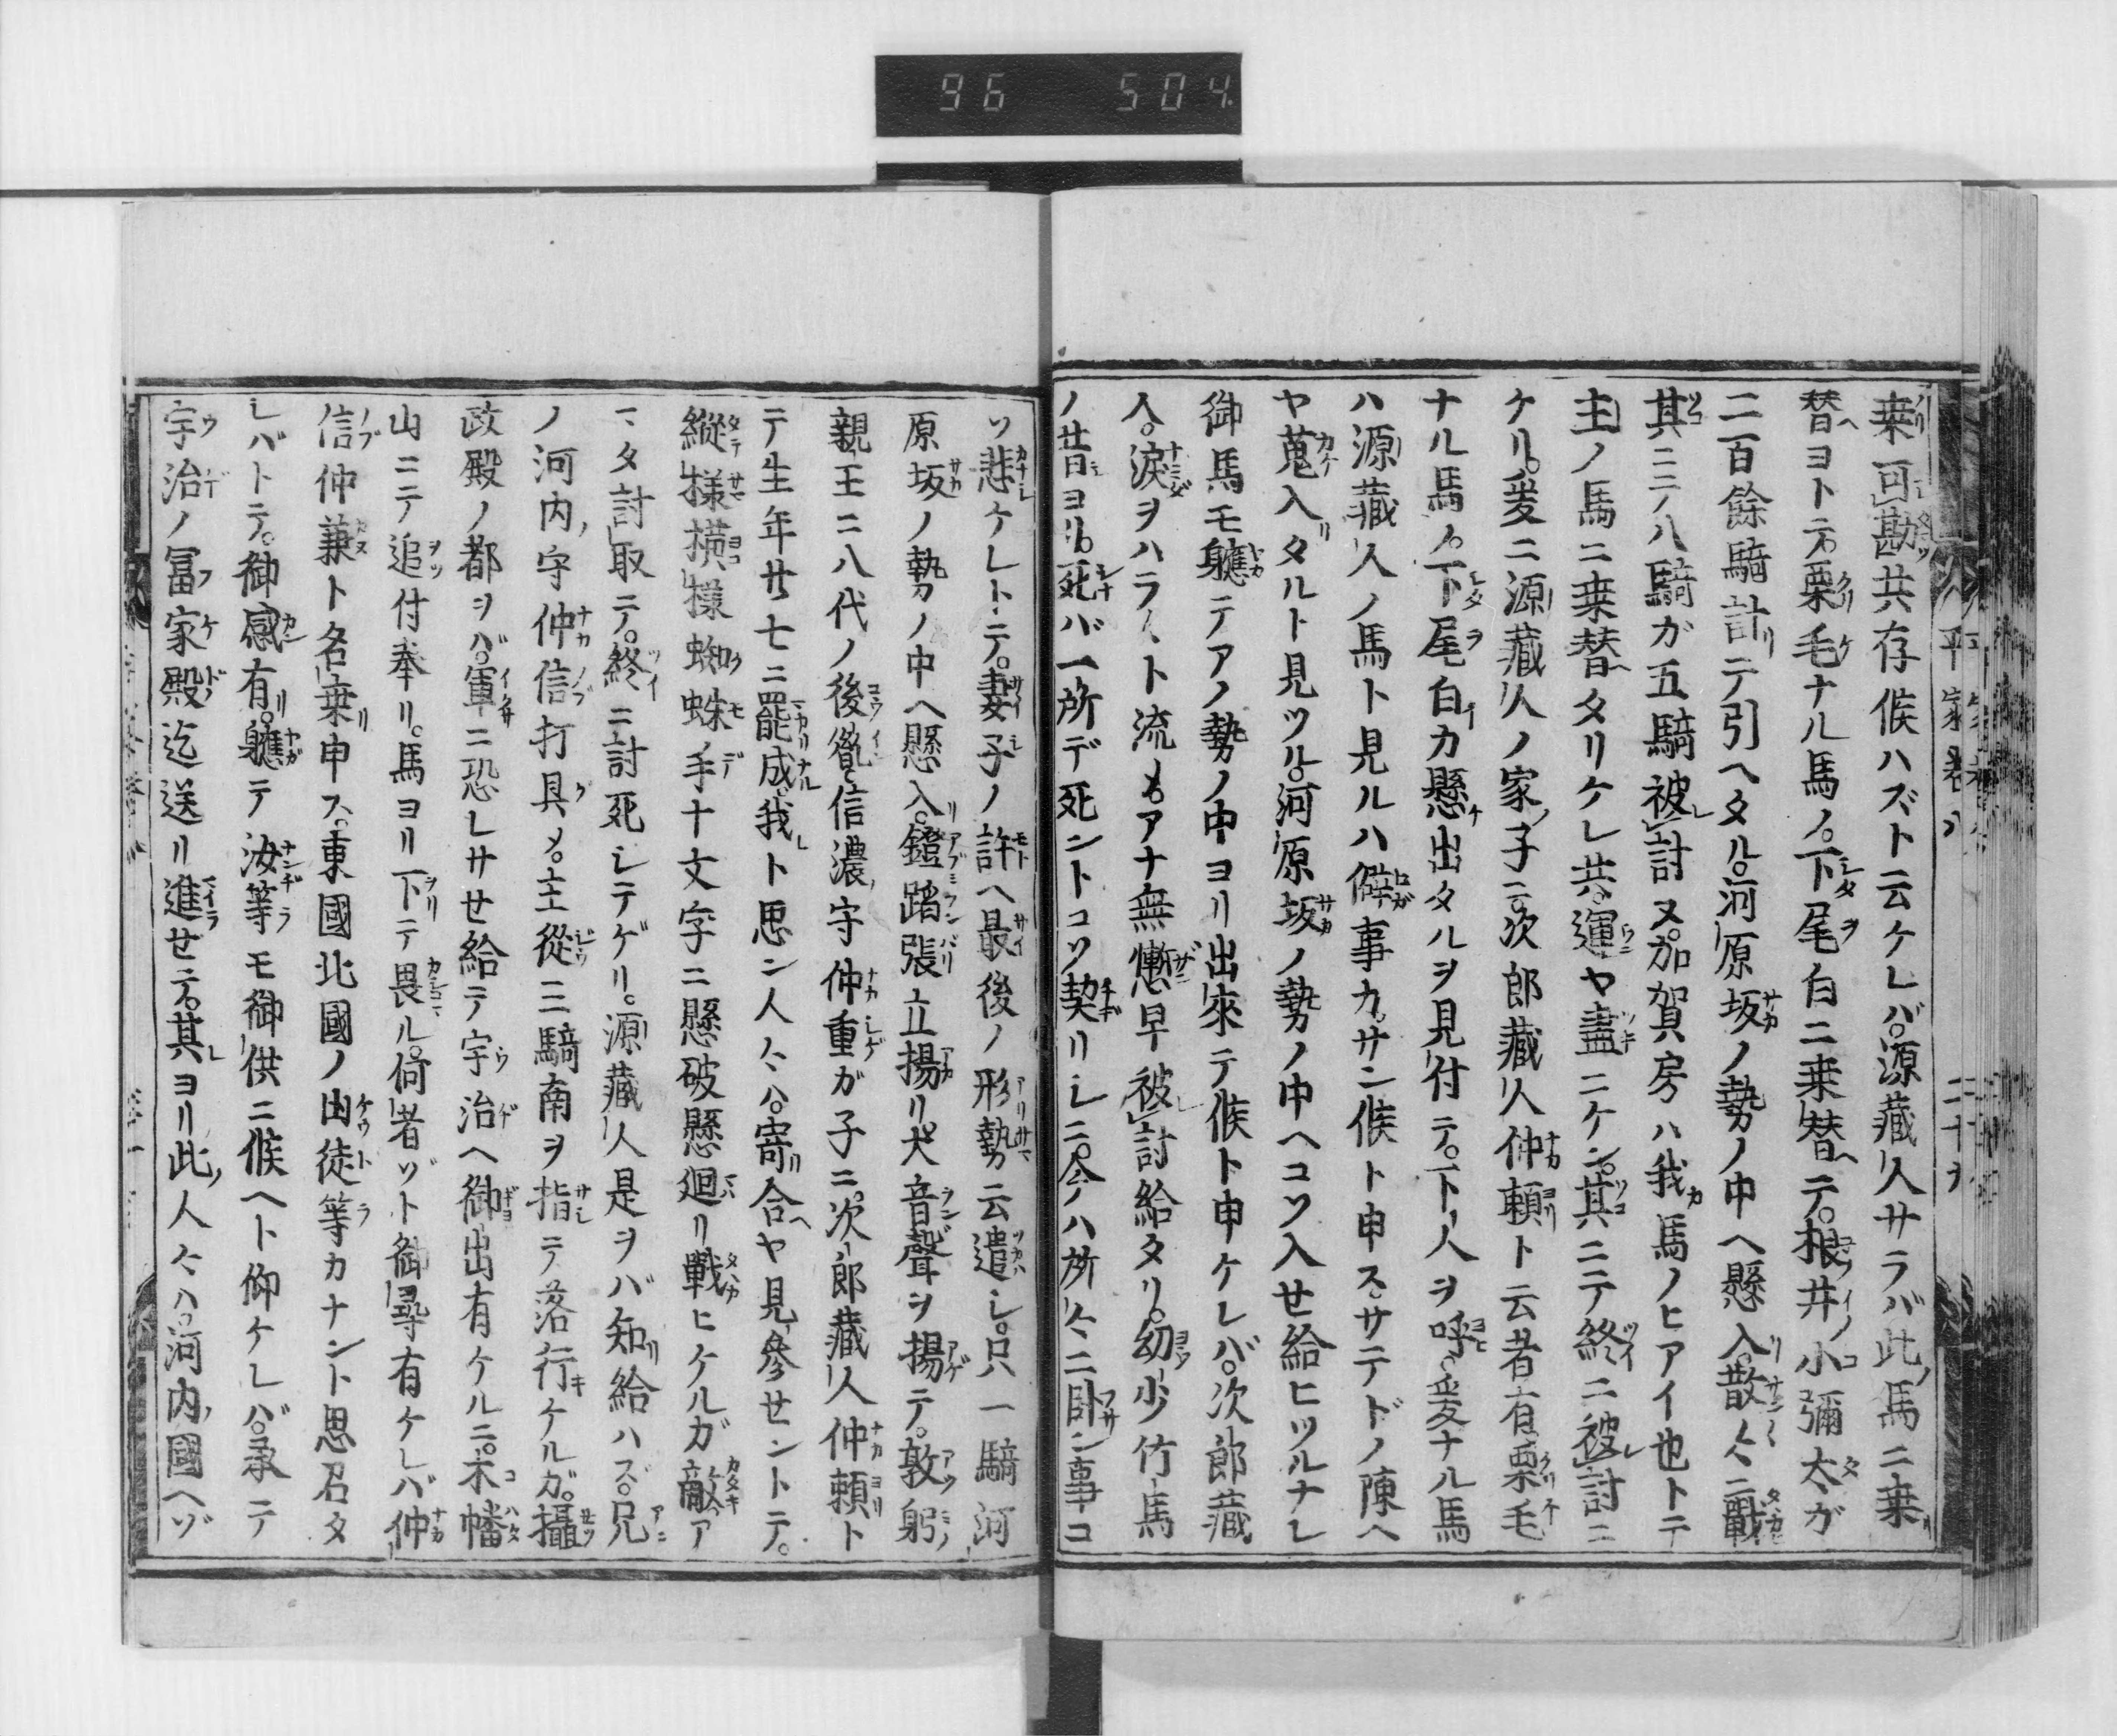 96 504
平家巻八 二十ヲ
乗可勘共存候ハズト云ケレバ。源藏人サラバ此馬ニ乗
替ヨトテ。栗毛ナル馬ノ。下尾白ニ乗替テ。根井小彌太ガ
二百餘騎計テ引ヘタル。河原坂ノ勢ノ中ヘ懸入。散々ニ戰
其ニテ八騎ガ五騎被討ヌ。加賀房ハ我馬ノヒアイ也トテ
主ノ馬ニ乗替タリケレ共。運ヤ盡ニケン。其ニテ終ニ被討ニ
ケリ。爰ニ源藏人ノ家ノ子ニ。次郎藏人仲頼ト云者有。栗毛
ナル馬ノ。下尾白カ懸出タルヲ見付テ。下人ヲ呼。爰ナル馬
ハ源藏人ノ馬ト見ルハ僻事カ。サン候ト申ス。サテドノ陳ヘ
ヤ蒐入タルト見ツル。河原坂ノ勢ノ中ヘコソ入せ給ヒツルナレ
御馬モ軈テアノ勢ノ中ヨリ出來テ候ト申ケレバ。次郎藏
人。淚ヲハラ〱ト流メ。アナ無慚早被討給タリ。幼少竹馬
ノ昔ヨリ。死バ一所デ死ントコソ契リシニ。今ハ所々ニ臥ン事コ
ソ悲ケレトテ。妻子ノ許ヘ最後ノ形勢云遣シ。只一騎河
原坂ノ勢ノ中ヘ懸入。鐙踏張立揚リ。大音聲ヲ揚テ。敦躬
親王ニ八代ノ後胤信濃守仲重ガ子ニ。次郎藏人仲頼ト
テ生年廿七ニ罷成。我ト思ン人々ハ。寄合ヤ見參せントテ。
縱様横様蜘蛛手十文字ニ懸破懸廻リ戰ヒケルガ敵ア
マタ討取テ。終ニ討死シテゲリ。源藏人是ヲバ知給ハズ。兄
ノ河内守仲信打具メ。主從三騎南ヲ指テ落行ケルガ。攝
政殿ノ都ヲバ。軍ニ恐レサせ給テ宇治ヘ御出有ケルニ。木幡
山ニテ追付奉リ。馬ヨリ下テ畏ル。何者ゾト御尋有ケレバ仲
信仲兼ト名乗申ス。東國北國ノ凶徒等カナント思召タ
レバトテ。御感有。軈テ汝等モ御供ニ候ヘト仰ケレバ。承テ
宇治ノ冨家殿迄送リ進せテ。其ヨリ此人々ハ。河内國ヘゾ